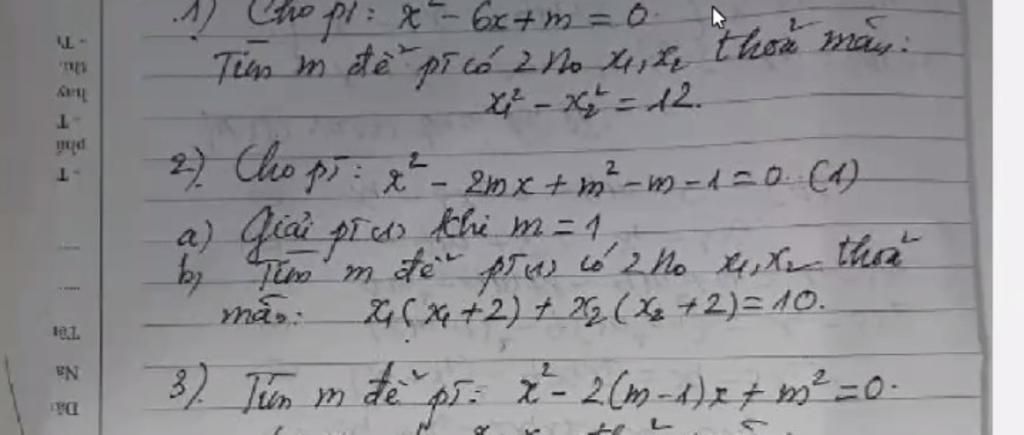 1) Cho pt: x² - 6x + m = 0.
Tìm m để pt có 2 no x₁, x₂ thoả mãn:
x₁² - x₂² = 12.
2) Cho pt: x² - 2mx + m² - m - 1 = 0. (1)
a) Giải pt (1) khi m = 1
b) Tìm m để pt (1) có 2 no x₁, x₂ thoả
mãn: x₁(x₁ + 2) + x₂(x₂ + 2) = 10.
3) Tìm m để pt: x² - 2(m - 1)x + m² = 0.